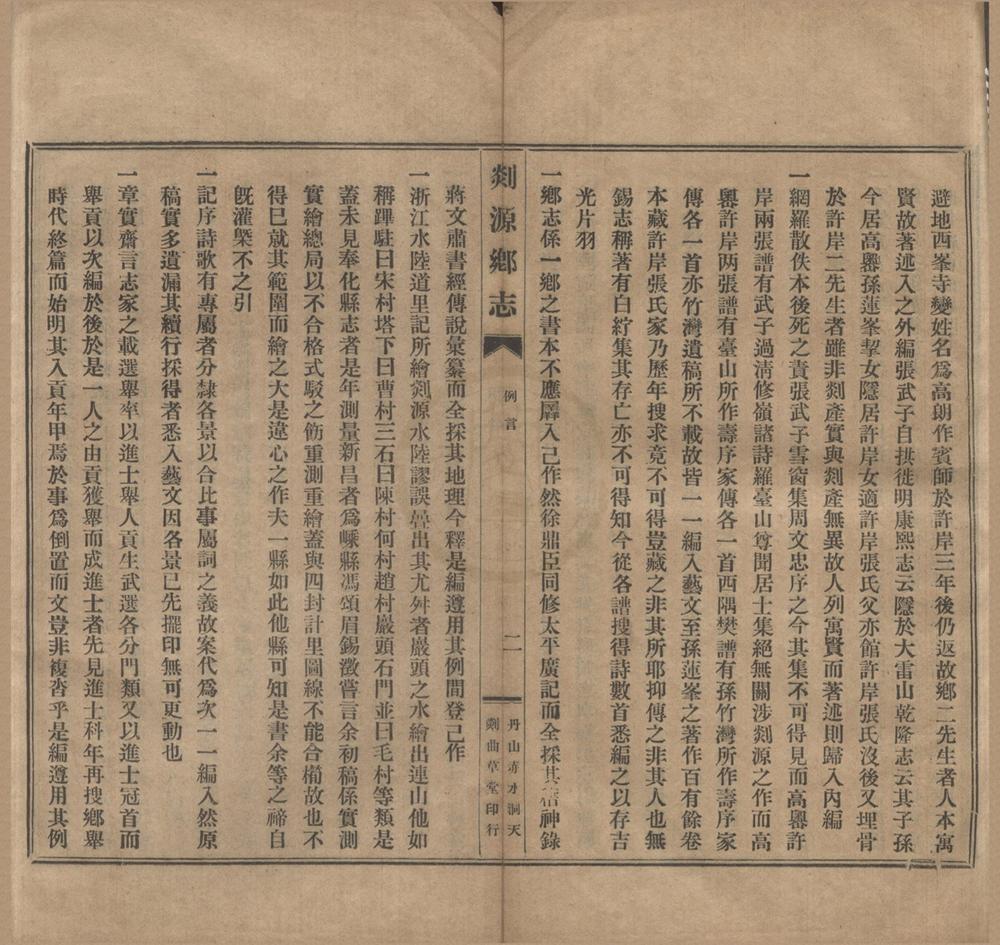 避地西峯寺變姓名爲高朗作賓師於許岸三年後仍返故鄉二先生者人本寓
賢故著述入之外編張武子自拱徙明康熙志云隱於大雷山乾隆志云其子孫
今居高嶴孫蓮峯挈女隱居許岸女適許岸張氏父亦館許岸張氏沒後又埋骨
於許岸二先生者雖非剡產實與剡產無異故人列寓賢而著述則歸入內編
一網羅散佚本後死之責張武子雪窗集周文忠序之今其集不可得見而高嶴許
岸兩張譜有武子過清修嶺諸詩羅臺山尊聞居士集絕無關涉剡源之作而高
嶴許岸两張譜有臺山所作壽序家傳各一首西隅樊譜有孫竹灣所作壽序家
傳各一首亦竹灣遺稿所不載故皆一一編入藝文至孫蓮峯之著作百有餘卷
本藏許岸張氏家乃歷年搜求竟不可得豈藏之非其所耶抑傳之非其人也無
錫志稱著有白紵集其存亡亦不可得知今從各譜搜得詩數首悉編之以存吉
光片羽
一鄉志係一鄉之書本不應羼入己作然徐鼎臣同修太平廣記而全採其稽神錄
剡源鄉志
例言
二
丹山赤水洞天
剡曲草堂印行
蔣文肅書經傳說彙纂而全採其地理今釋是編遵用其例間登己作
一浙江水陸道里記所繪剡源水陸謬誤疊出其尤舛者巖頭之水繪出連山他如
稱蹕駐曰宋村塔下曰曹村三石曰陳村何村趙村巖頭石門並曰毛村等類是
蓋未見奉化縣志者是年測量新昌者爲嵊縣馮頌眉錫澂嘗言余初稿係實測
實繪總局以不合格式駁之飭重測重繪蓋與四封計里圖線不能合櫥故也不
得已就其範圍而繪之大是違心之作夫一縣如此他縣可知是書余等之禘自
旣灌槩不之引
一記序詩歌有專屬者分隸各景以合比事屬詞之義故案代爲次一一編入然原
稿實多遺漏其續行採得者悉入藝文因各景已先擺印無可更動也
一章實齋言志家之載選舉率以進士舉人貢生武選各分門類又以進士冠首而
舉貢以次編於後於是一人之由貢獲舉而成進士者先見進士科年再搜鄉舉
時代終篇而始明其入貢年甲焉於事爲倒置而文豈非複沓乎是編遵用其例